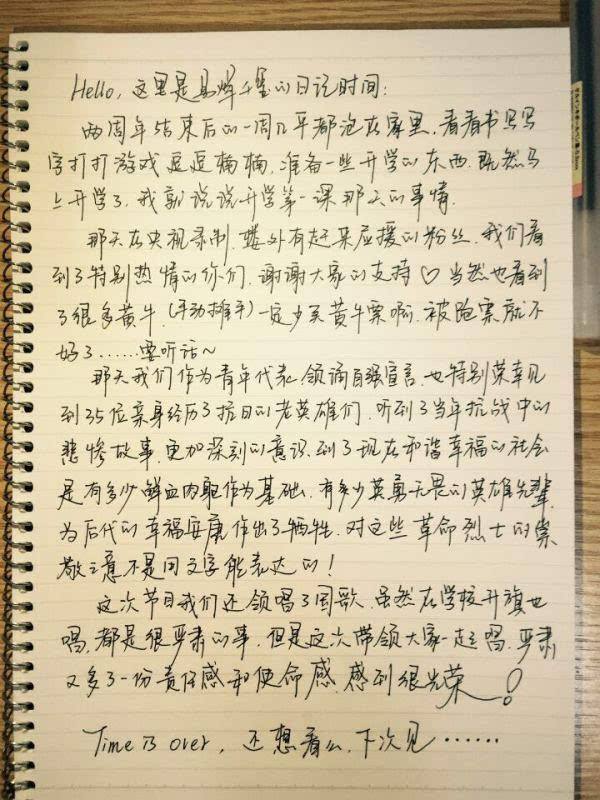 Hello, 这里是易烊千玺的日记时间:
两周年结束后的一周几乎都泡在家里,看看书写写
字打打游戏逗逗楠楠,准备一些开学的东西.既然马
上开学了,我就说说开学第一课那天的事情.
那天在央视录制,楼外有赶来应援的粉丝,我们看
到了特别热情的你们,谢谢大家的支持♡当然也看到
了很多黄牛,(手动摊手)一定少买黄牛票啊,被跑票就不
好了……要听话~
那天我们作为青年代表,领诵自强宣言,也特别荣幸见
到35位亲身经历了抗日的老英雄们,听到了当年抗战中的
悲惨故事,更加深刻的意识到了现在和谐幸福的社会
是有多少鲜血肉躯作为基础,有多少英勇无畏的英雄先辈,
为后代的幸福安康作出了牺牲,对这些革命烈士的崇
敬之意不是用文字能表达的!
这次节目我们还领唱了国歌,虽然在学校升旗也
唱,都是很严肃的事,但是这次带领大家一起唱,严肃
又多了一份责任感和使命感,感到很光荣!
Time is over, 还想看么,下次见……